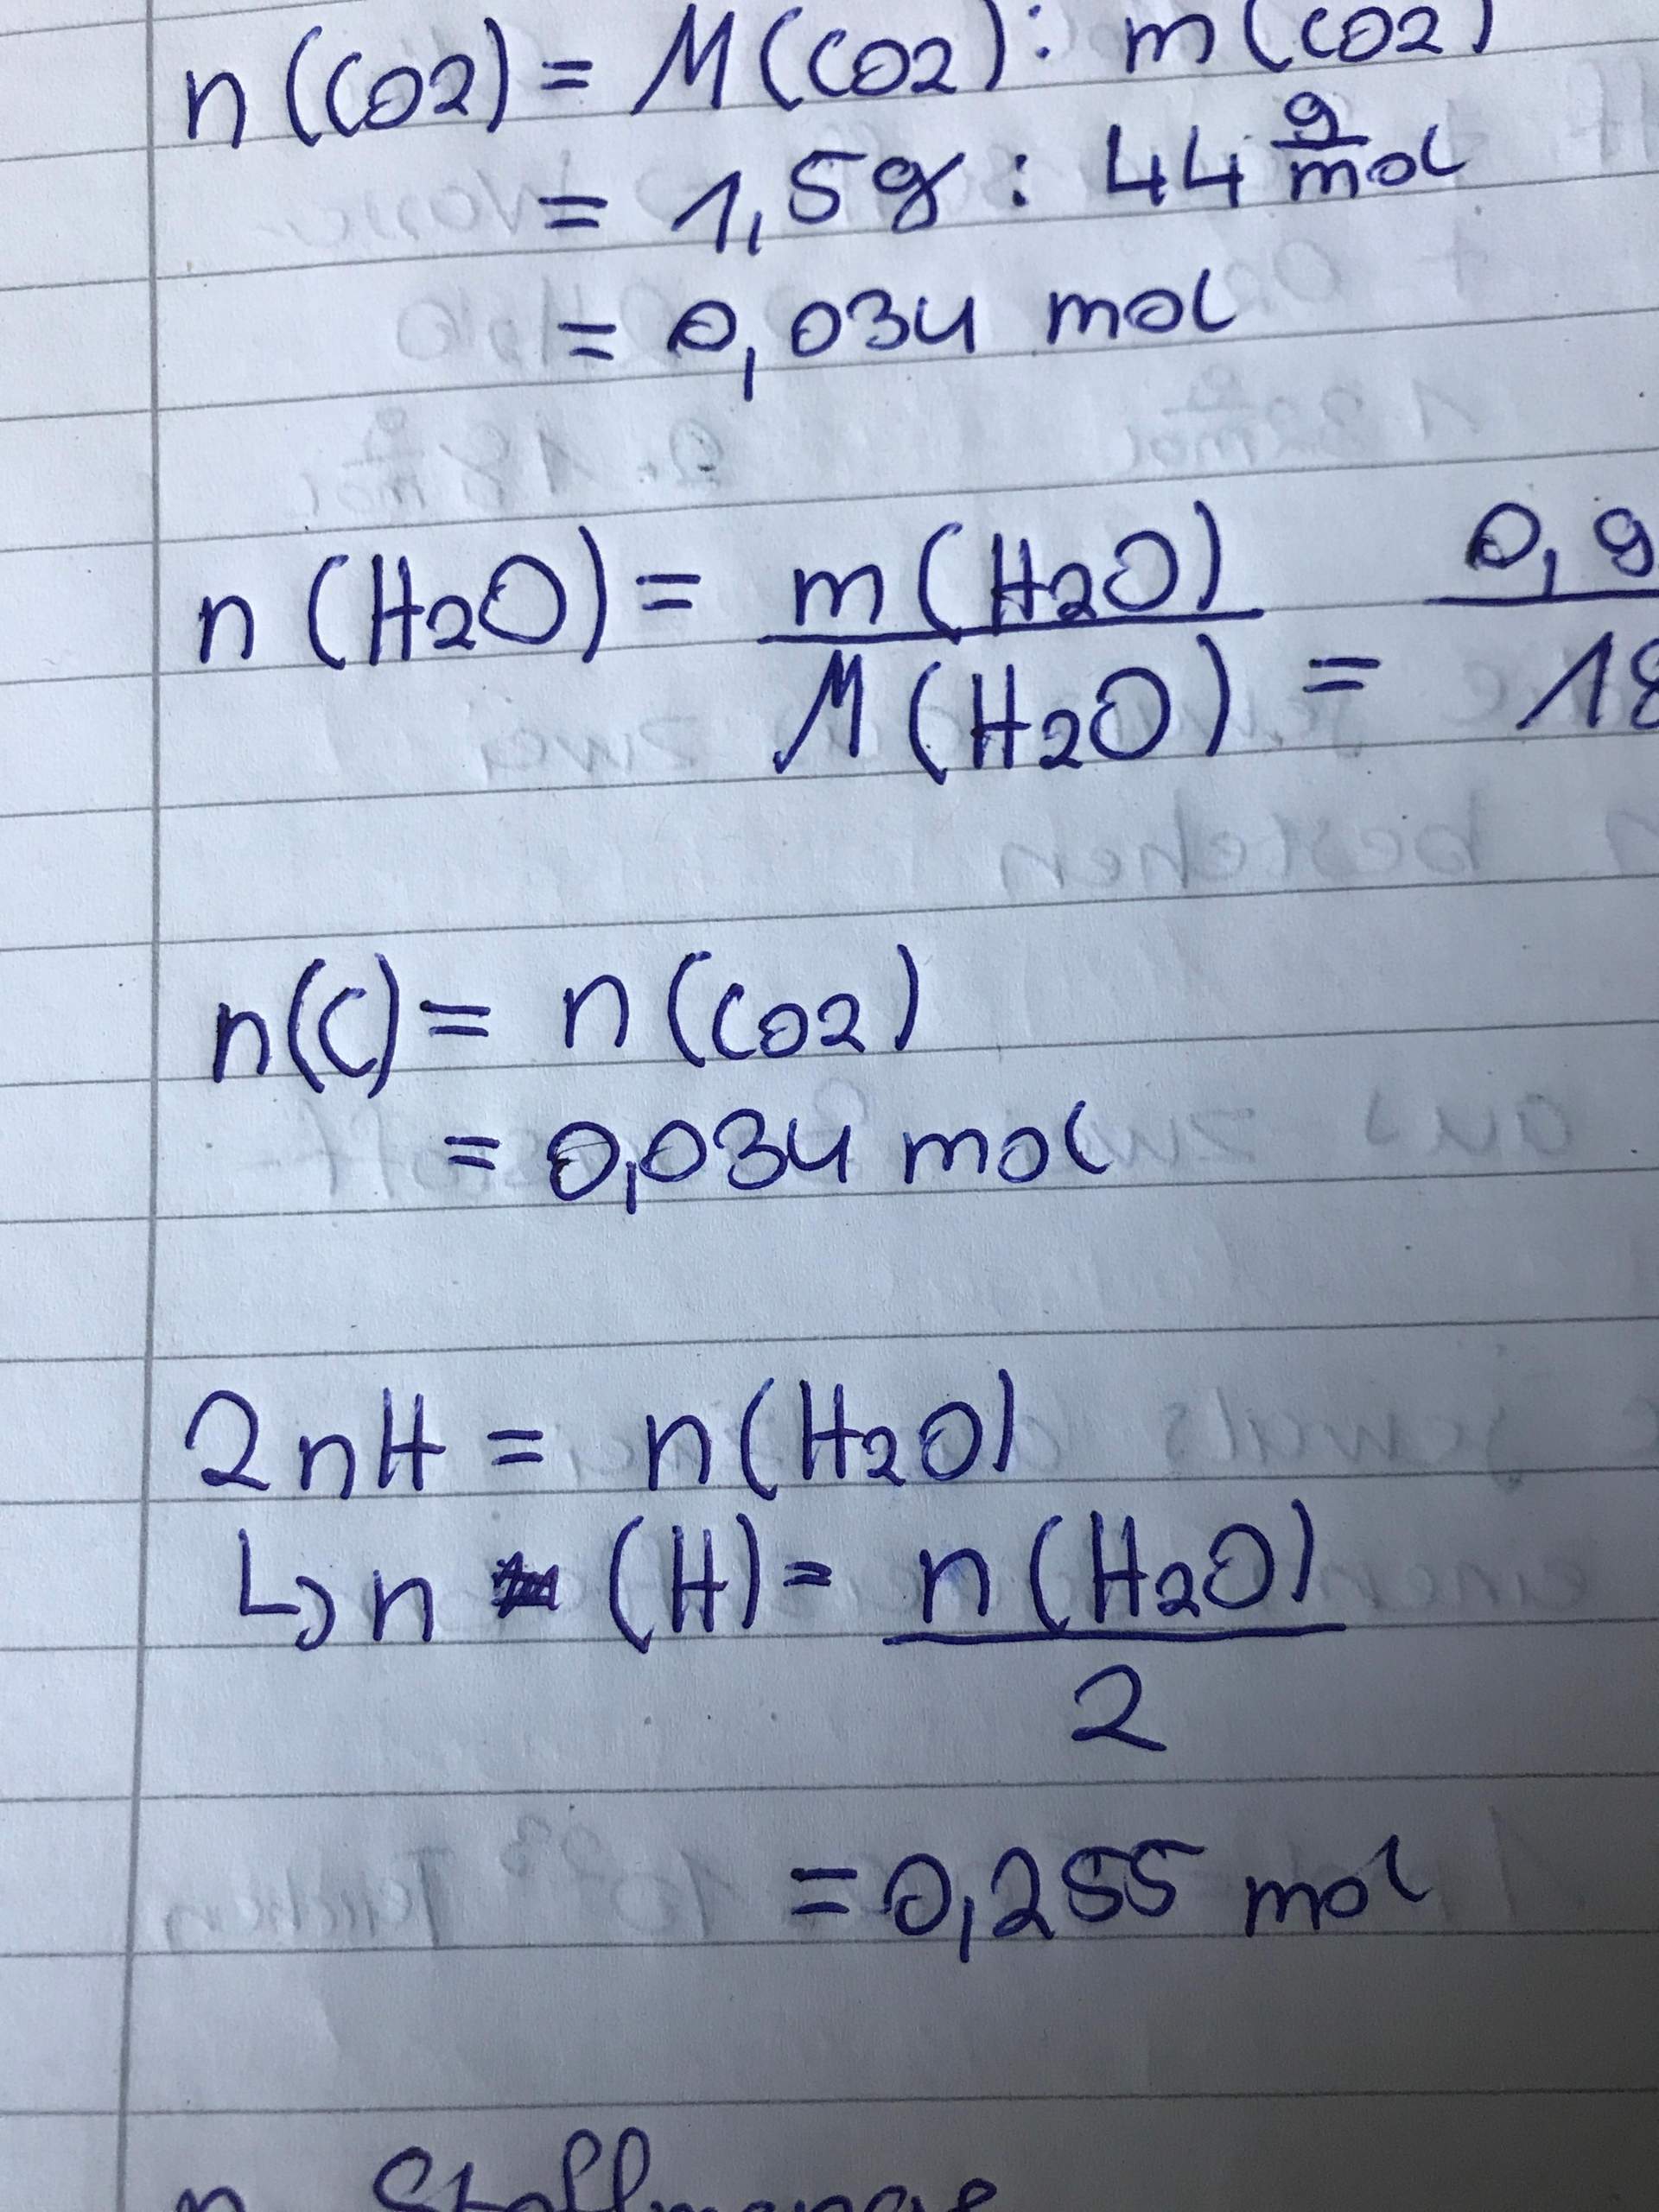 n (CO2) = M (CO2) : m (CO2)
= 1,5g : 44 g/mol
= 0,034 mol
n (H2O) = m (H2O) / M (H2O) = 0,9 / 18
n(C) = n (CO2)
= 0,034 mol
2 nH = n (H2O)
↳ n (H) = n (H2O) / 2
= 0,255 mol
n Stoffmenge